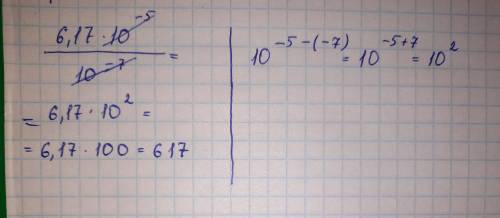 6,17 · 10⁻⁵
10⁻⁷ =
= 6,17 · 10² =
= 6,17 · 100 = 617
10⁻⁵⁻⁽⁻⁷⁾ = 10⁻⁵⁺⁷ = 10²